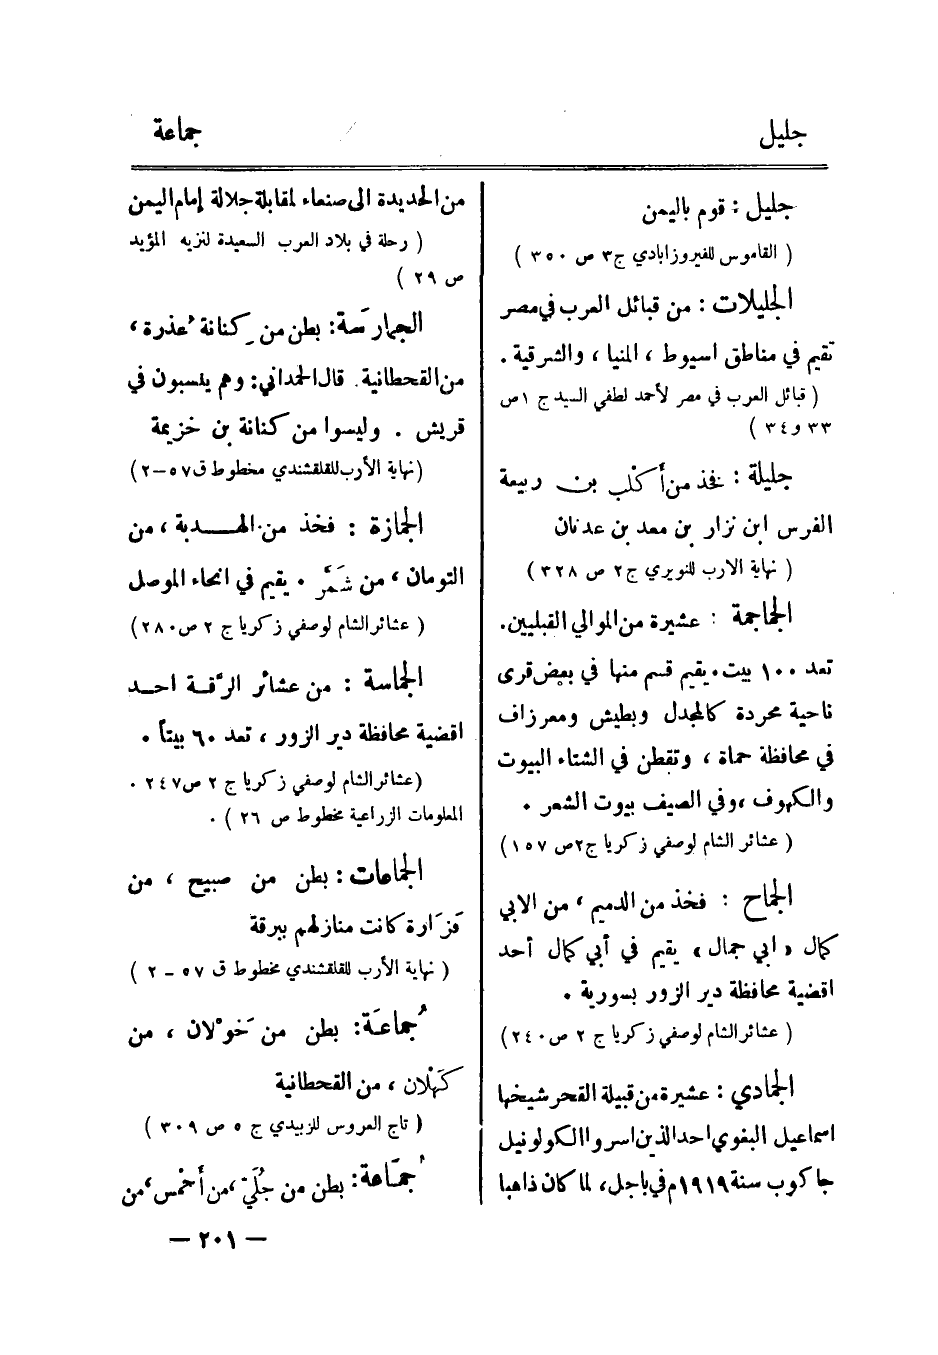 جليل
جماعة
جليل : قوم باليمن
( القاموس للفيروزابادي ج٣ ص ٣٥٠ )
الجليلات : من قبائل العرب في مصر
تقيم في مناطق اسيوط ، المنيا ، والشرقية .
( قبائل العرب في مصر لأحمد لطفي السيد ج ١ ص
٣٣ و ٣٤ )
جليلة : فخذ من أَكْلب بن ربيعة
الفرس ابن نزار بن معد بن عدنان
( نهاية الارب للنويري ج٢ ص ٣٢٨ )
الجماجمة : عشيرة من الموالي القبليين.
تعد ١٠٠ بيت. يقيم قسم منها في بعض قرى
ناحية محردة كالمجدل وبطيش ومعرزاف
في محافظة حماة ، وتقطن في الشتاء البيوت
والكهوف ، وفي الصيف بيوت الشعر .
( عشائر الشام لوصفي زكريا ج٢ ص ١٥٧ )
الجماح : فخذ من الدميم ، من الابي
كمال « ابي جمال » يقيم في أبي كمال أحد
اقضية محافظة دير الزور بسورية .
( عشائر الشام لوصفي زكريا ج ٢ ص ٢٤٠ )
الجمادي : عشيرة من قبيلة القحر شيخها
اسماعيل البغوي احد الذين اسروا الكولونيل
جاكوب سنة ١٩١٩م في باجل، لما كان ذاهبا
من الحديدة الى صنعاء لمقابلة جلالة إمام اليمن
( رحلة في بلاد العرب السعيدة لنزيه المؤيد
ص ٢٩ )
الجمارَسَة : بطن من كِنانة عُذرة ،
من القحطانية. قال الحمداني : وهم ينسبون في
قريش . وليسوا من كنانة بن خزيمة
( نهاية الأرب للقلقشندي مخطوط ق ٥٧-٢ )
الجمازة : فخذ من الهدبة ، من
التومان ، من شَمَّر . يقيم في انحاء الموصل
( عشائر الشام لوصفي زكريا ج ٢ ص ٢٨٠ )
الجماسة : من عشائر الرَّقة احد
اقضية محافظة دير الزور ، تعد ٦٠ بيتاً .
( عشائر الشام لوصفي زكريا ج ٢ ص ٢٤٧ .
المعلومات الزراعية مخطوط ص ٢٦ ) .
الجماعات : بطن من صبيح ، من
فَزَارة كانت منازلهم ببرقة
( نهاية الأرب للقلقشندي مخطوط ق ٥٧ - ٢ )
جُماعَة : بطن من خَوْلان ، من
كَهْلان ، من القحطانية
( تاج العروس للزبيدي ج ٥ ص ٣٠٩ )
جُمَّاعة : بطن من جُلَيّ، من أَحْمس، من
— ٢٠١ —